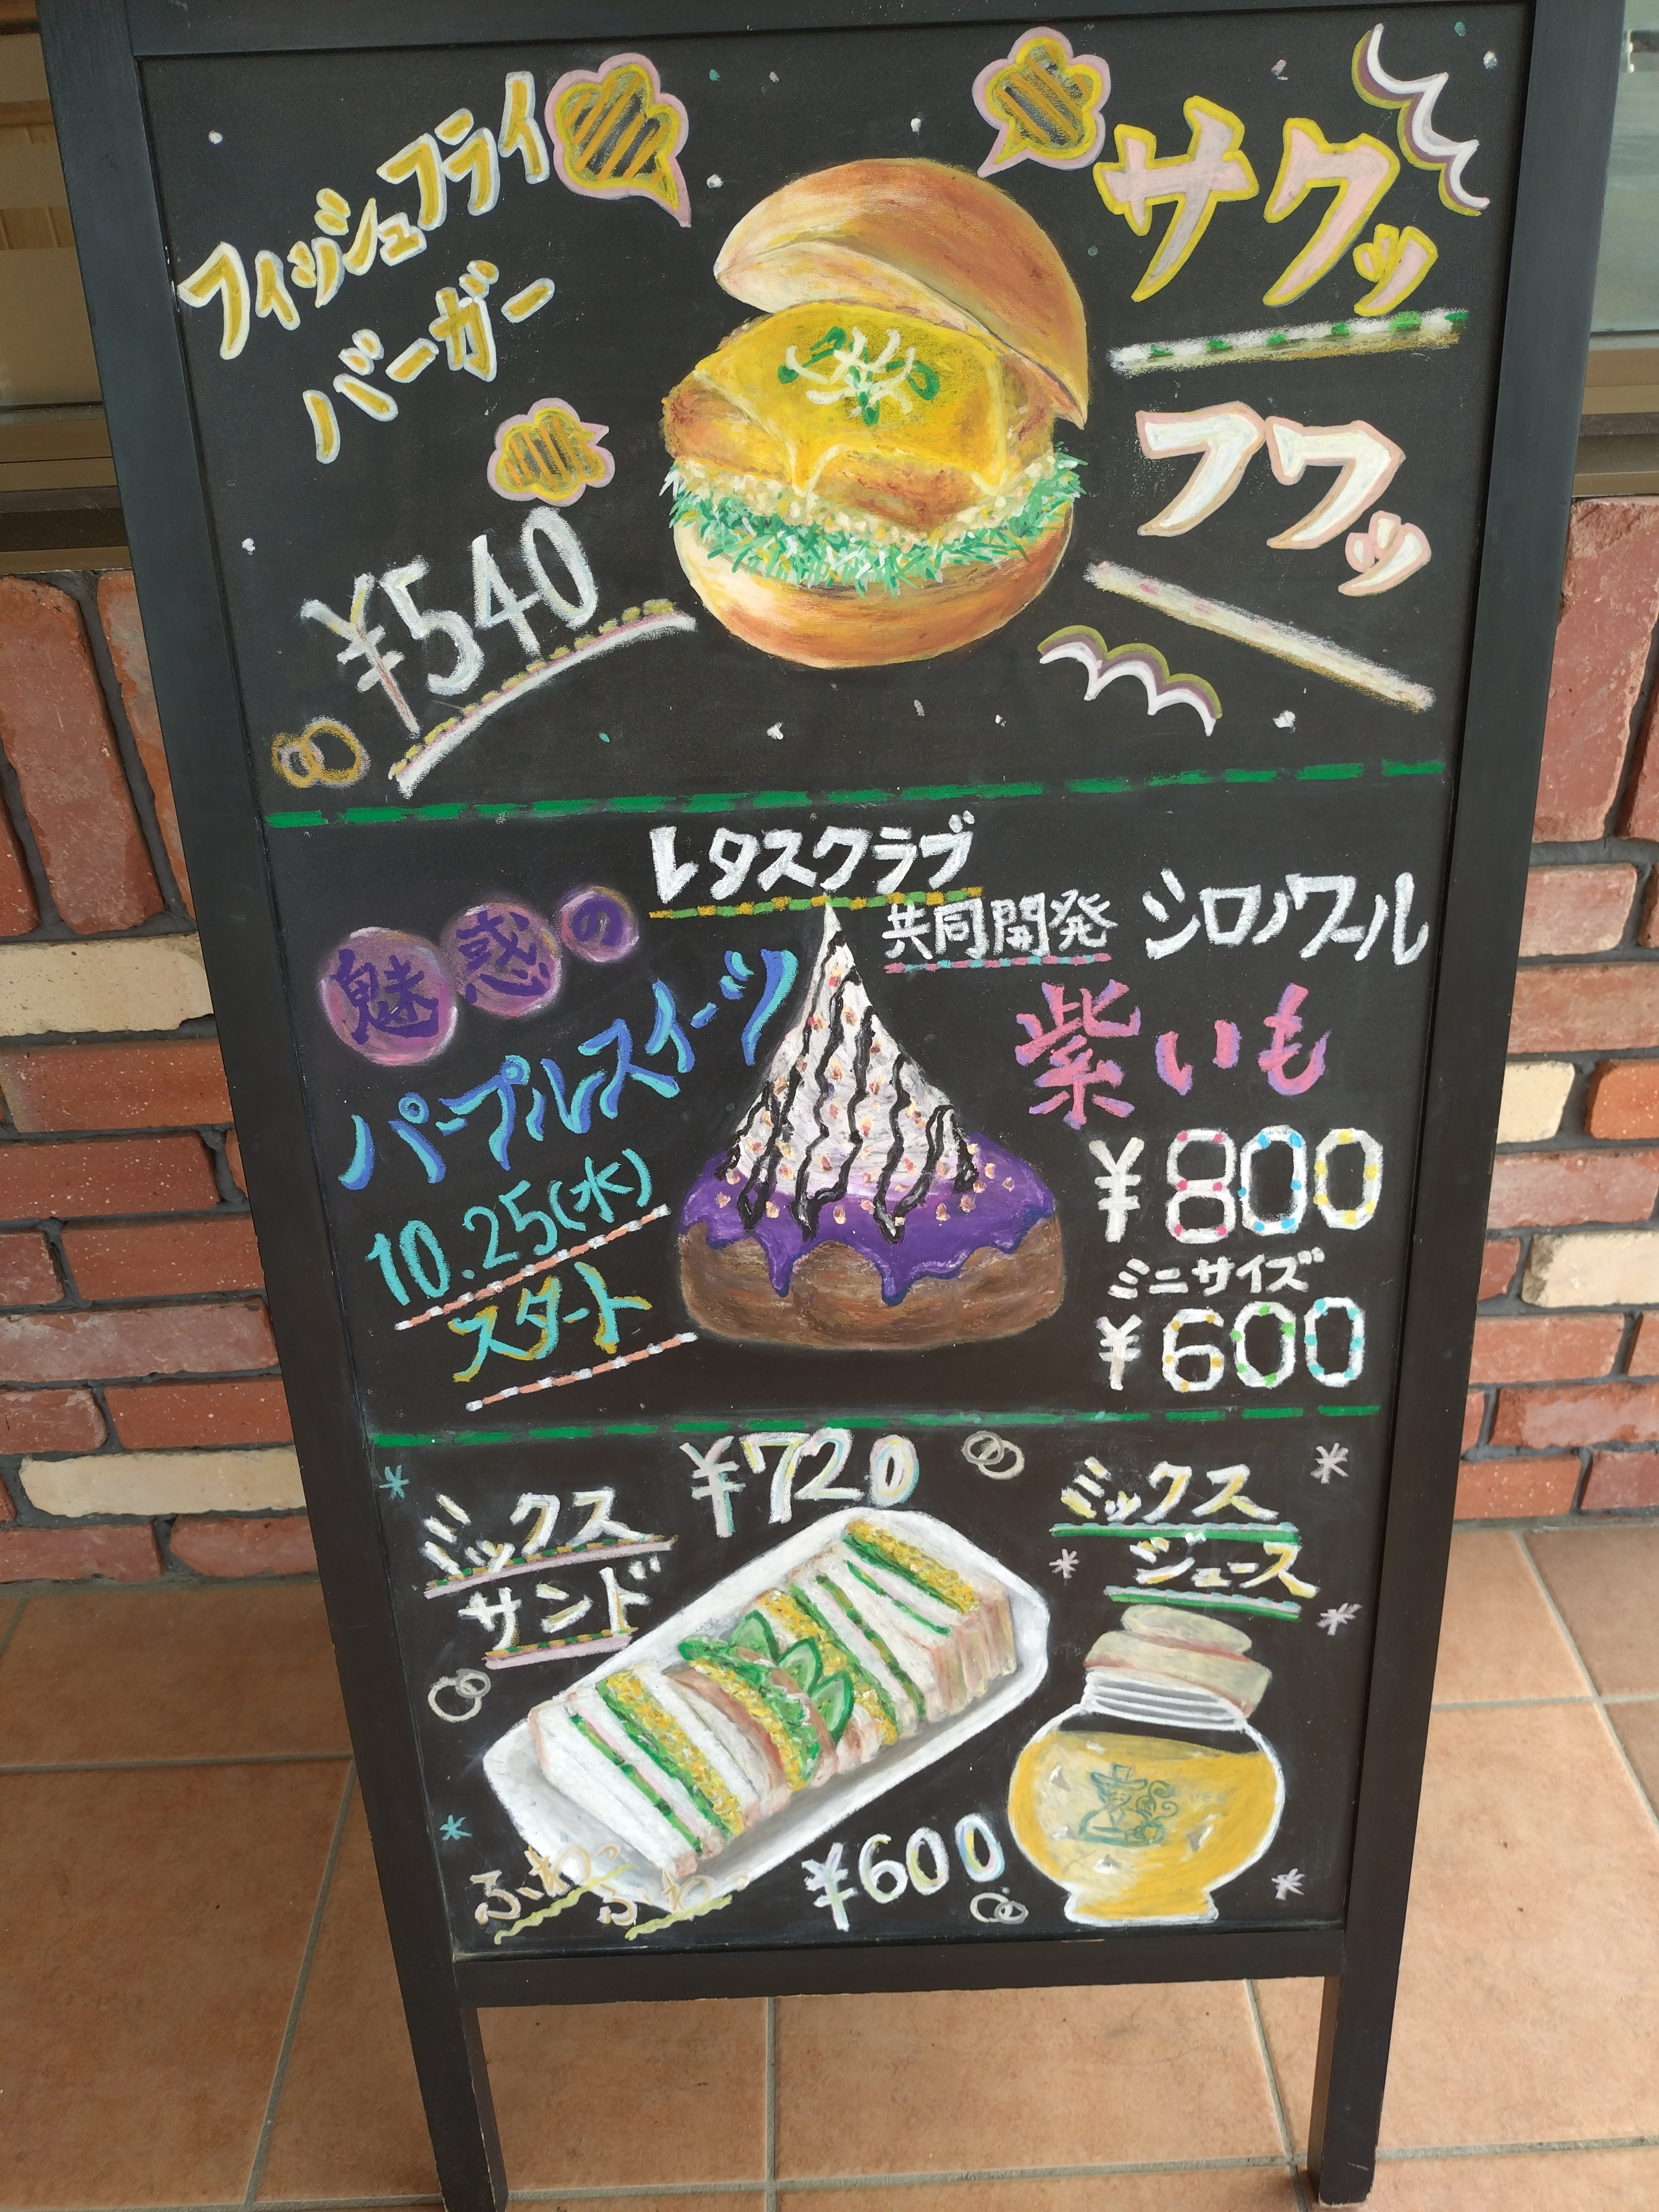 フィッシュフライ
バーガー
¥540
サクッ
フワッ
レタスクラブ
共同開発 シロノワール
魅惑の
パープルスイーツ
10.25(水)
スタート
紫いも
¥800
ミニサイズ
¥600
¥720
ミックス
サンド
ふわっ
ふわっ
ミックス
ジュース
¥600